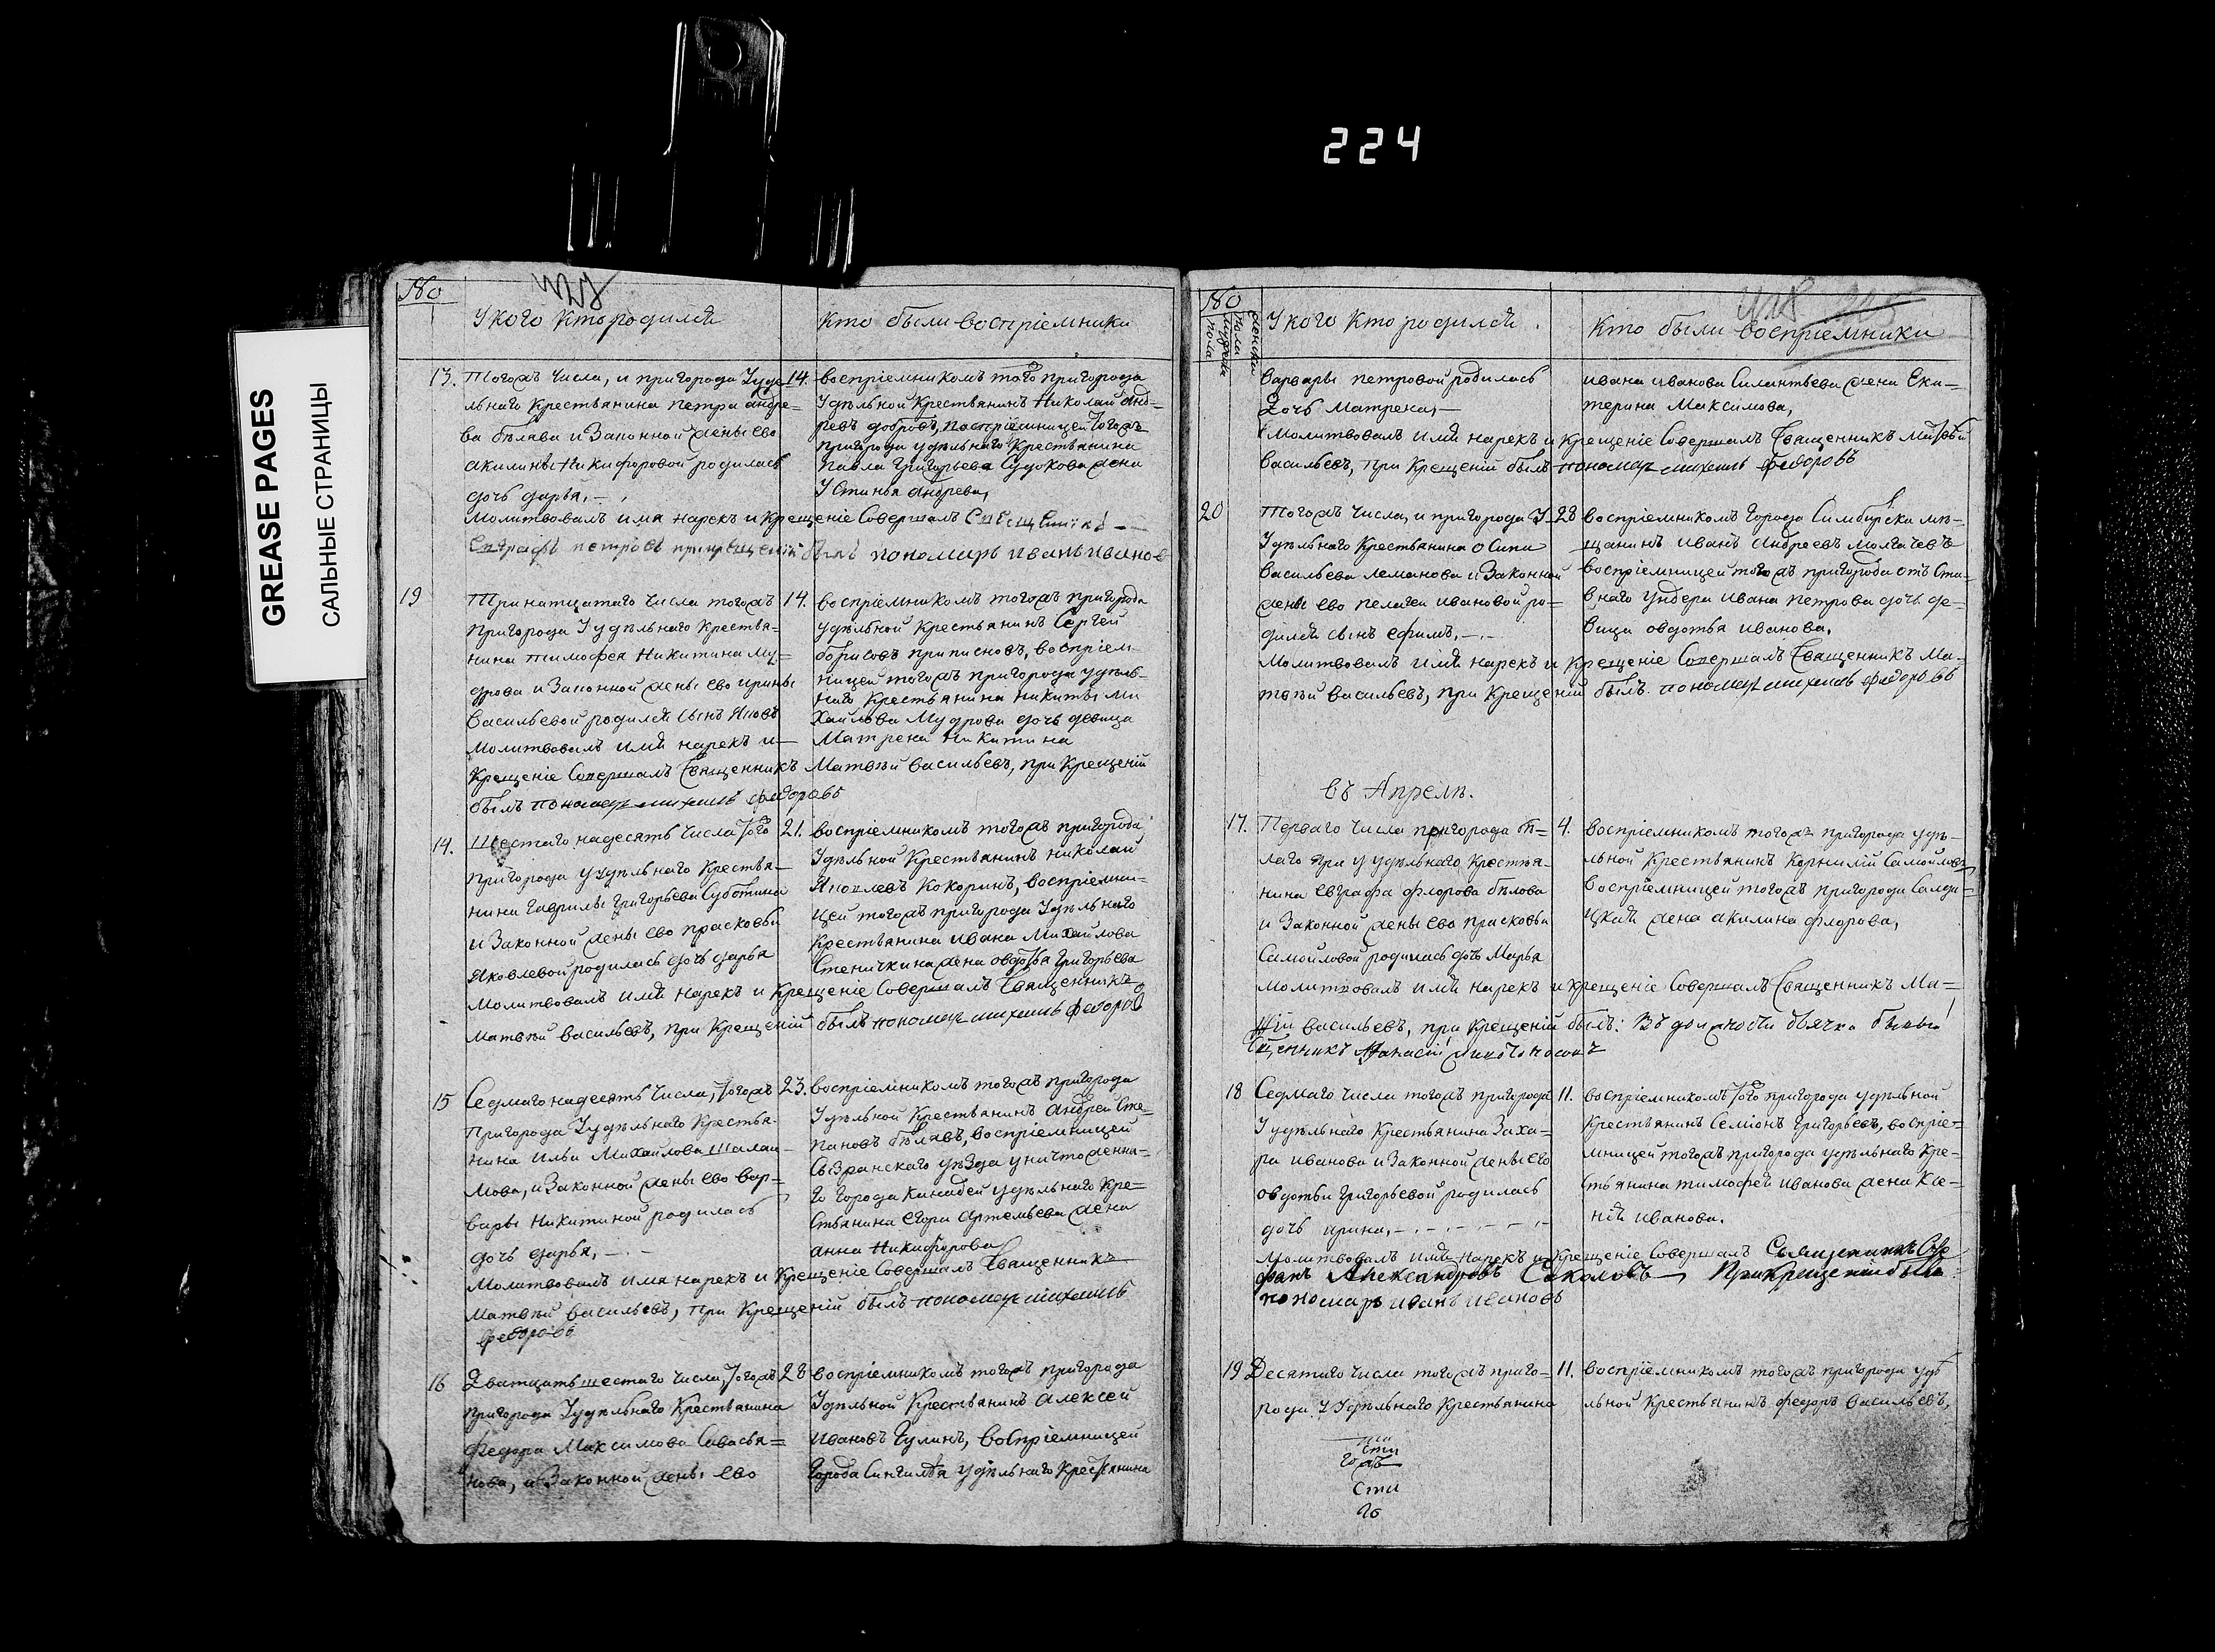 224
GREASE PAGES
САЛЬНЫЕ СТРАНИЦЫ
№
У кого Кто родился
Кто были воспріемники
13.
Тогожъ Числа, и пригорода Ч удѣ-
льнаго Крестьянина Петра андре=
ва бѣлява и Законной жены ево
акилины Никифоровой родилась
дочь дарья, —
14.
воспріемникомъ того пригорода
Удѣльной Крестьянинъ Николай анд=
ревъ добровъ, воспріемницей тогожъ
пригорода удѣльнаго Крестьянина
Павла Григорьева Судокова жена
Устинья андрева,
Молитвовалъ имя нарекъ и Крещеніе Совершалъ Священникъ
Евграфъ петровъ при крещеніи былъ пономарь иванъ иванов
19
Тринатцатаго Числа тогожъ
Пригорода Ч удѣльнаго Крестья=
нина тимофея Никитина Му=
дрова и Законной жены ево ирины
Васильевой родился сынъ Яковъ
14.
воспріемникомъ тогожъ пригорода
удѣльной Крестьянинъ Сергей
борисовъ приписновъ, воспріем-
ницей тогожъ пригорода удѣль-
наго Крестьянина никиты ми
хайлова Мудрова дочь девица
Матрена Никитина
Молитвовалъ имя нарекъ и
Крещеніе Совершалъ Священникъ Матвѣй васильевъ, при Крещеніи
былъ пономарь михаилъ федоровъ
14.
Шестаго надесять Числа того
пригорода У удѣльнаго Крестья-
нина Гаврилы Григорьева Суботина
и Законной жены ево прасковьи
Яковлевой родилась дочь дарья
21.
воспріемникомъ тогожъ пригорода
Удѣльной Крестьянинъ николай
Яковлевъ Кокоринъ, воспріемни-
цей тогожъ пригорода Удѣльнаго
Крестьянина ивана Михайлова
Стеничкина жена овдотья Григорьева
Молитвовалъ имя нарекъ и Крещеніе Совершалъ Священникъ
Матвѣй васильевъ, при Крещеніи былъ пономарь михаилъ федоров
15
Седмаго надесять Числа, тогожъ
Пригорода Ч удѣльнаго Крестья-
нина ильи Михайлова Шалаи-
мова, и Законной жены ево вар=
вары Никитиной родилась
дочь дарья, —.—
23.
воспріемникомъ тогожъ пригорода
Удѣльной Крестьянинъ андрей Сте=
пановъ бѣлявъ, воспріемницей
Сызранскаго уѣзда уничтоженна=
го города Канадей удѣльнаго Кре=
стьянина егора Артемьева жена
анна Никифорова
Молитвовалъ имя нарекъ и Крещеніе Совершалъ Священникъ
Матвѣй васильевъ, при Крещеніи былъ пономарь михаилъ
федоровъ
16
Дватцать шестаго Числа, тогожъ
пригорода Ч удѣльнаго Крестьянина
Федора Максимова Савасья=
нова, и Законной жены ево
28
воспріемникомъ тогожъ пригорода
Удѣльной Крестьянинъ алексей
ивановъ Гулинъ, воспріемницей
города Сингилѣя удѣльнаго Крестьянина
№
У кого Кто родился
Кто были воспріемники
варвары петровой родилась
дочь Матрена, —
ивана иванова Силантьева жена Ека=
терина Максимова,
Молитвовалъ имя нарекъ и Крещеніе Совершалъ Священникъ матвѣй
васильевъ, при Крещеніи былъ пономарь михаилъ федоровъ
20
Тогожъ Числа, и пригорода Ч
Удѣльнаго Крестьянина осипа
васильева леманова и Законной
жены ево пелагеи ивановой ро=
дился сынъ ефимъ, —.—
28
воспріемникомъ города Симбирска мѣ-
щанинъ иванъ андреевъ молгачевъ
воспріемницей тогожъ пригорода отъ ста-
внаго ундера ивана петрова дочь де=
вица овдотья иванова.
Молитвовалъ имя нарекъ и Крещеніе Совершалъ Священникъ Ма-
твѣй васильевъ, при Крещеніи былъ пономарь михаилъ федоровъ
въ Апреле.
17.
Перваго Числа пригорода бѣ=
лаго Яру у удѣльнаго Крестья-
нина евграфа флорова бѣлова
и Законной жены ево прасковьи
Самойловой родилась дочь Марья
4.
воспріемникомъ тогожъ пригорода удѣ-
льной Крестьянинъ Корнилій Самойловъ
воспріемницей тогожъ пригорода Салда=
цкая жена акилина флорова,
Молитвовалъ имя нарекъ и крещеніе Совершалъ Священникъ Ма=
твѣй васильевъ, при Крещеніи былъ: въ должности дьячка бывый
Священникъ Афанасій
18
Седмаго Числа тогожъ пригорода
Ч удѣльнаго Крестьянина Заха=
ра иванова и Законной жены его
овдотьи Григорьевой родилась
дочь ирина, —.—.—
11.
воспріемникомъ того пригорода удѣльной
Крестьянинъ Семіонъ Григорьевъ, воспріе=
мницей тогожъ пригорода удѣльнаго Кре=
стьянина тимофея иванова жена Ксе-
нія иванова.
Молитвовалъ имя нарекъ и Крещеніе Совершалъ Священникъ Сте
фанъ Александровъ Соколовъ — При Крещеніи былъ
пономарь иванъ ивановъ
19
Десятаго Числа тогожъ приго-
рода Ч Удѣльнаго Крестьянина
11.
воспріемникомъ тогожъ пригорода удѣ
льной Крестьянинъ федоръ Васильевъ,
сти
гожъ
сти
го